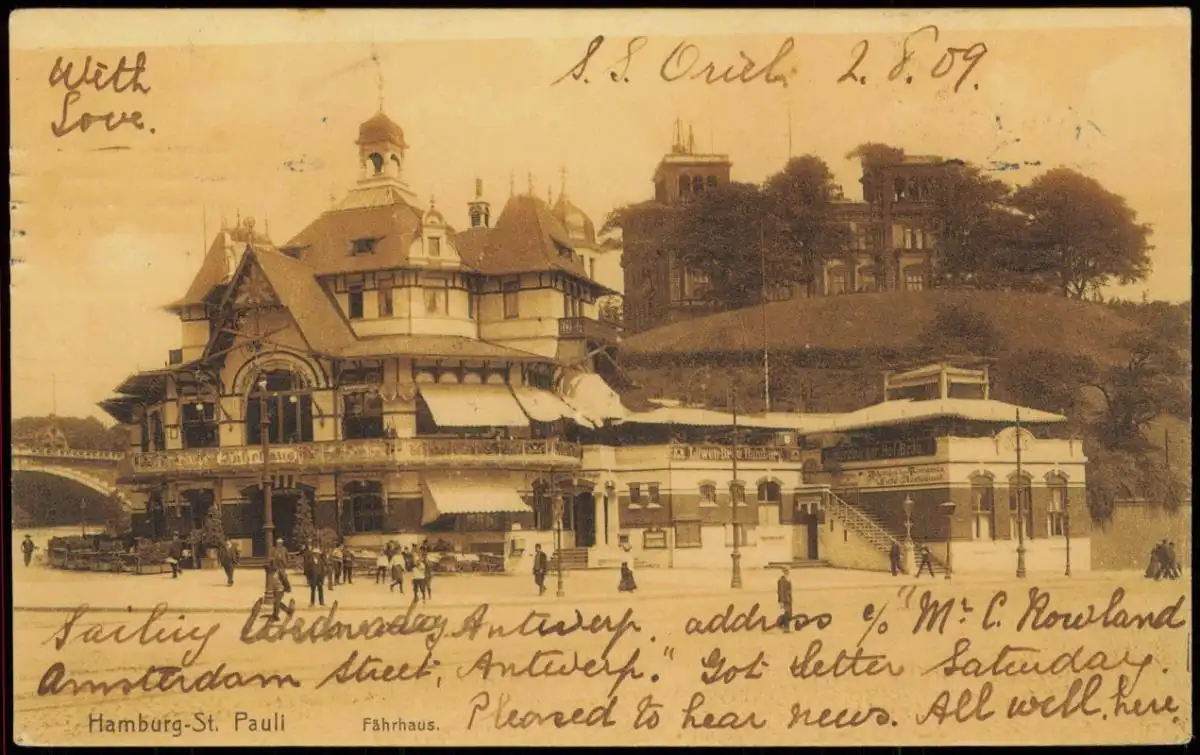 With
Love.
S.S. Oriel. 2.8.09.
Fährhaus
Sailing Antwerp, address c/o "Mr. C. Rowland
Amsterdam Street, Antwerp." Got letter Saturday.
Pleased to hear news. All well here.
Hamburg-St. Pauli
Fährhaus.